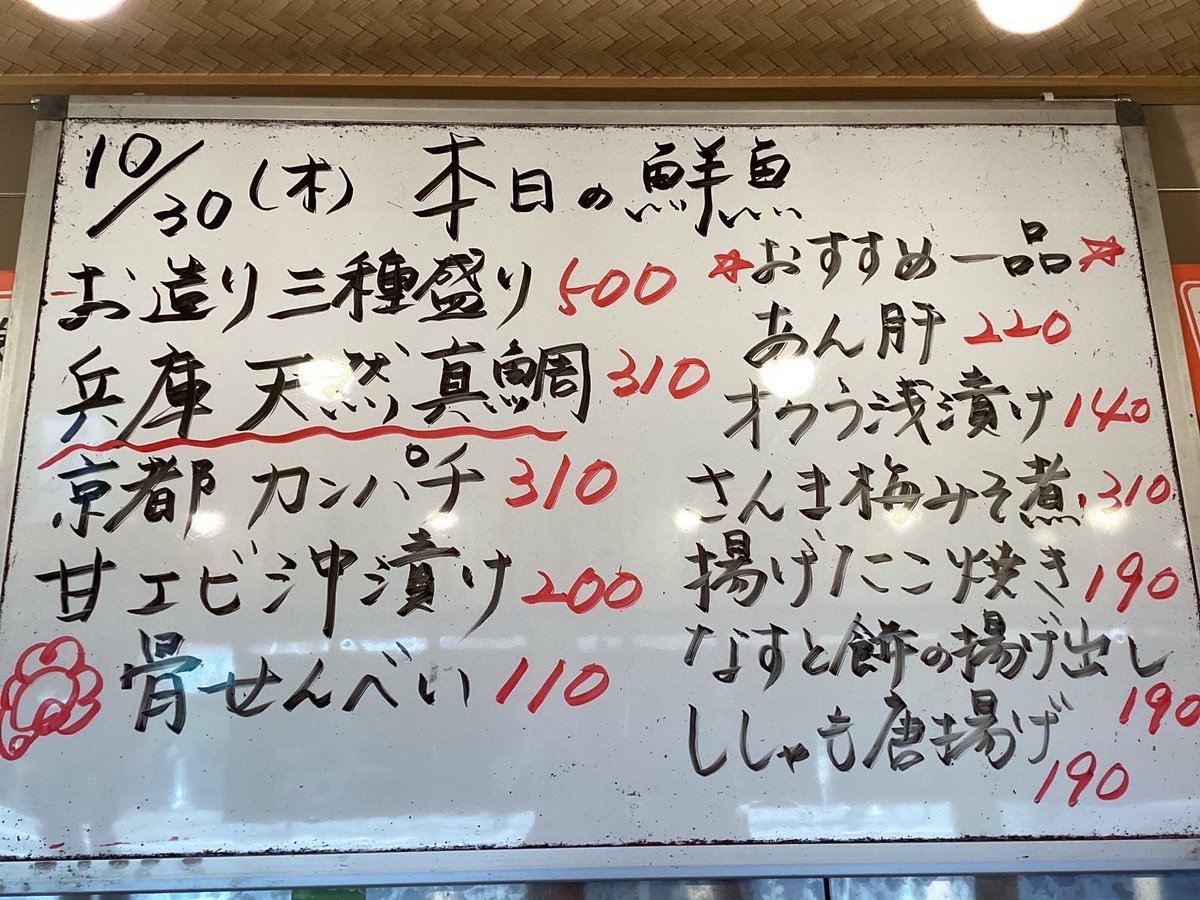 10/30(木) 本日の鮮魚
お造り三種盛り 500
兵庫 天然真鯛 310
京都 カンパチ 310
甘エビ沖漬け 200
骨せんべい 110
☆おすすめ一品☆
あん肝 220
オクラ浅漬け 140
さんま梅みそ煮 310
揚げたこ焼き 190
なすと餅の揚げ出し 190
ししゃも唐揚げ 190